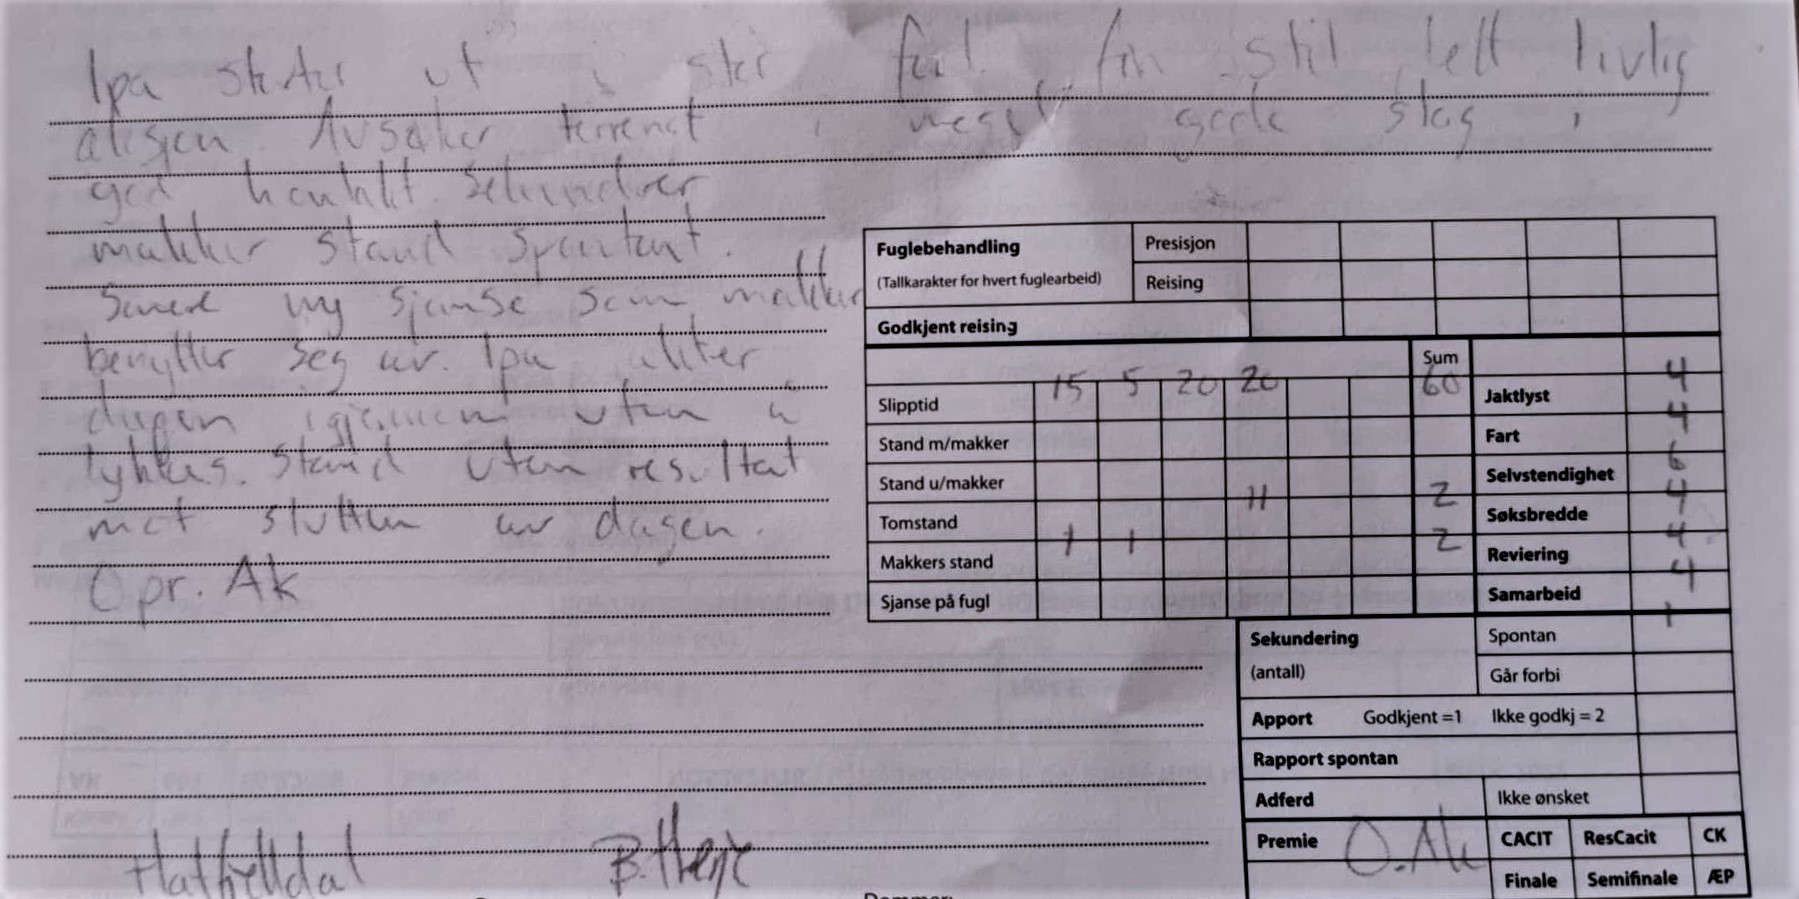 Ipa starter ut i stor fart. fin stil lett livlig
aksjon. Avsøker terrenget i meget gode slag i
god kontakt. Sekunderer
makker stand spontant.
Senere ny sjanse som makker
benytter seg av. Ipa
dagen igjennom uten å
lykkes. Stand uten resultat
mot slutten av dagen.
O pr. Ak
Fuglebehandling
(Tallkarakter for hvert fuglearbeid)
Presisjon
Reising
Godkjent reising
Sum
Slipptid 15 5 20 20 60
Stand m/makker
Stand u/makker
Tomstand 11 2
Makkers stand 1 1 2
Sjanse på fugl
Jaktlyst 4
Fart 4
Selvstendighet 6
Søksbredde 4
Reviering 4
Samarbeid 4
Sekundering
(antall)
Spontan 1
Går forbi
Apport Godkjent =1 Ikke godkj = 2
Rapport spontan
Adferd Ikke ønsket
Premie O.Ak CACIT ResCacit CK
Finale Semifinale ÆP
Hatfjelldal